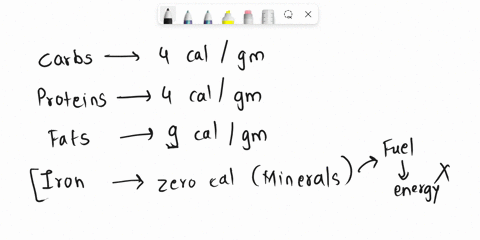 Carbs → 4 cal / gm
Proteins → 4 cal / gm
Fats → 9 cal / gm
[Iron → zero cal (Minerals) → Fuel
↓
energy X